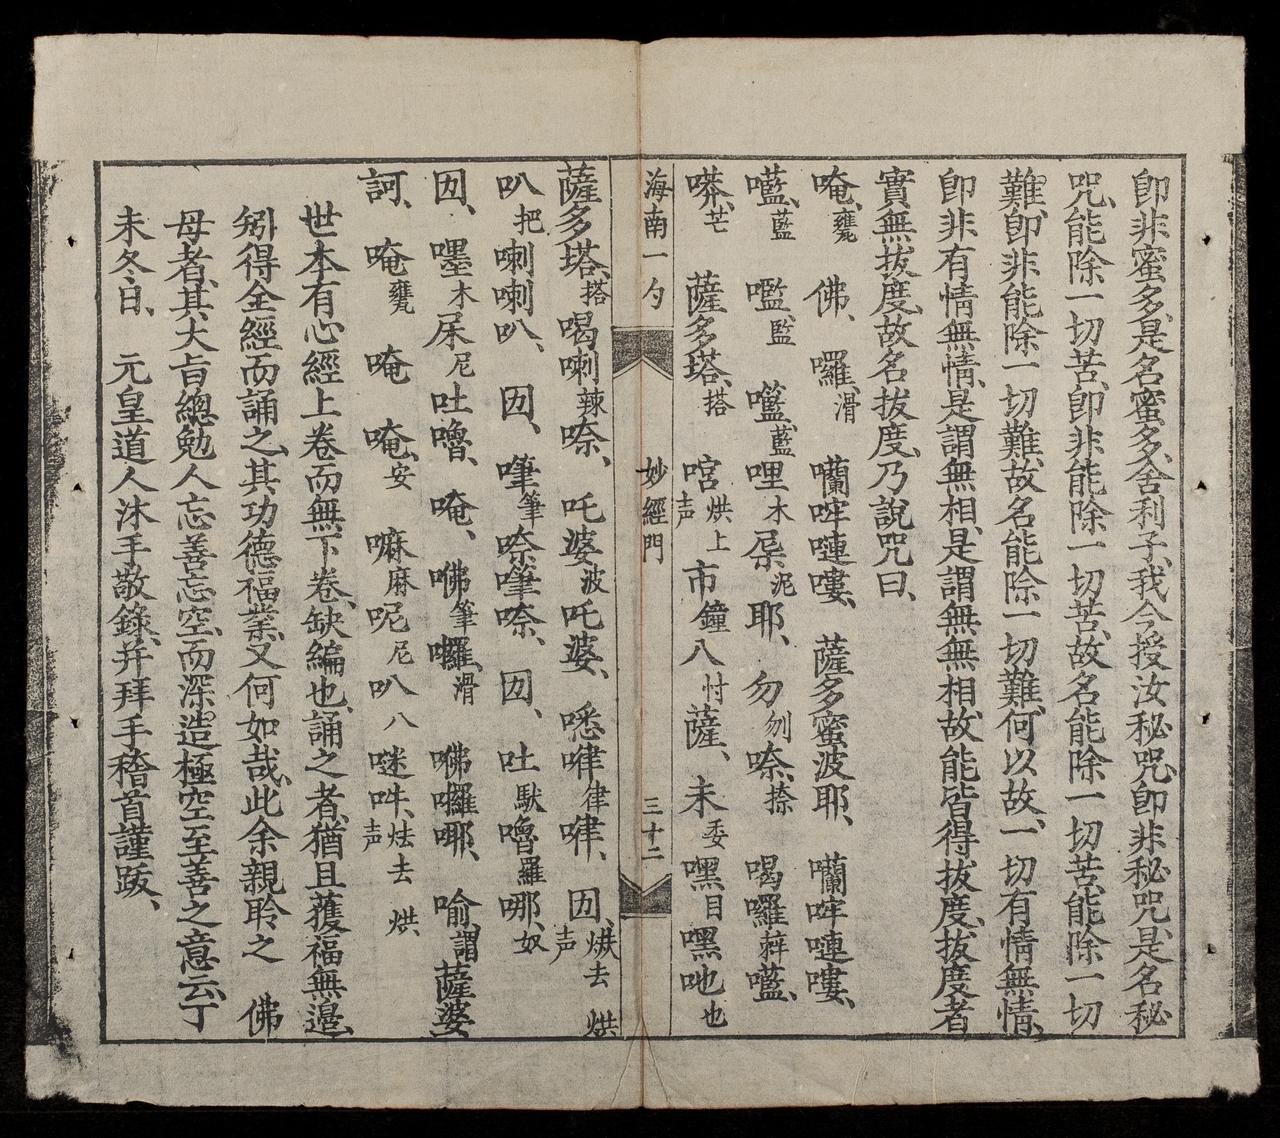 卽非蜜多、是名蜜多、舍利子、我今授汝秘咒、卽非秘咒、是名秘
咒、能除一切苦、卽非能除一切苦、故名能除一切苦、能除一切
難、卽非能除一切難、故名能除一切難、何以故、一切有情無情、
卽非有情無情、是謂無相、是謂無無相、故能皆得拔度、拔度者
實無拔度、故名拔度、乃說咒曰、
唵、甕 佛、囉、滑 囒哰嗹嘍、薩多蜜波耶、囒哰嗹嘍、
㘕藍 㘕監 㘕藍哩木屎泥耶、勿刎㮈、捺喝囉辢㘕、
嘜、芒 薩多塔、搭 唝烘上声市鐘八忖薩、未委嘿目嘿吔也
海南一勺 妙經門 三十二
薩多塔、搭喝喇辣㮈、吒婆波吒婆、㘄律律嘩、㘞、烘去声 烘
叭把喇喇叭、㘞、嗱筆㮈嗱㮈、㘞、吐馱嚕羅哪、奴
㘞、嚜木尿尼吐嚕、唵、㗘筆囉、滑 㗘囉哪、喻謂薩婆、
訶、唵甕 唵 唵、安 嘛麻呢尼叭八㖷吽、炫去声 烘、
世本有心經上卷、而無下卷、缺編也、誦之者、猶且獲福無邊、
矧得全經而誦之、其功德福業、又何如哉、此余親聆之 佛
母者、其大旨總勉人忘善忘空、而深造極空至善之意云、丁
未冬日、 元皇道人沐手敬錄、并拜手稽首謹跋、